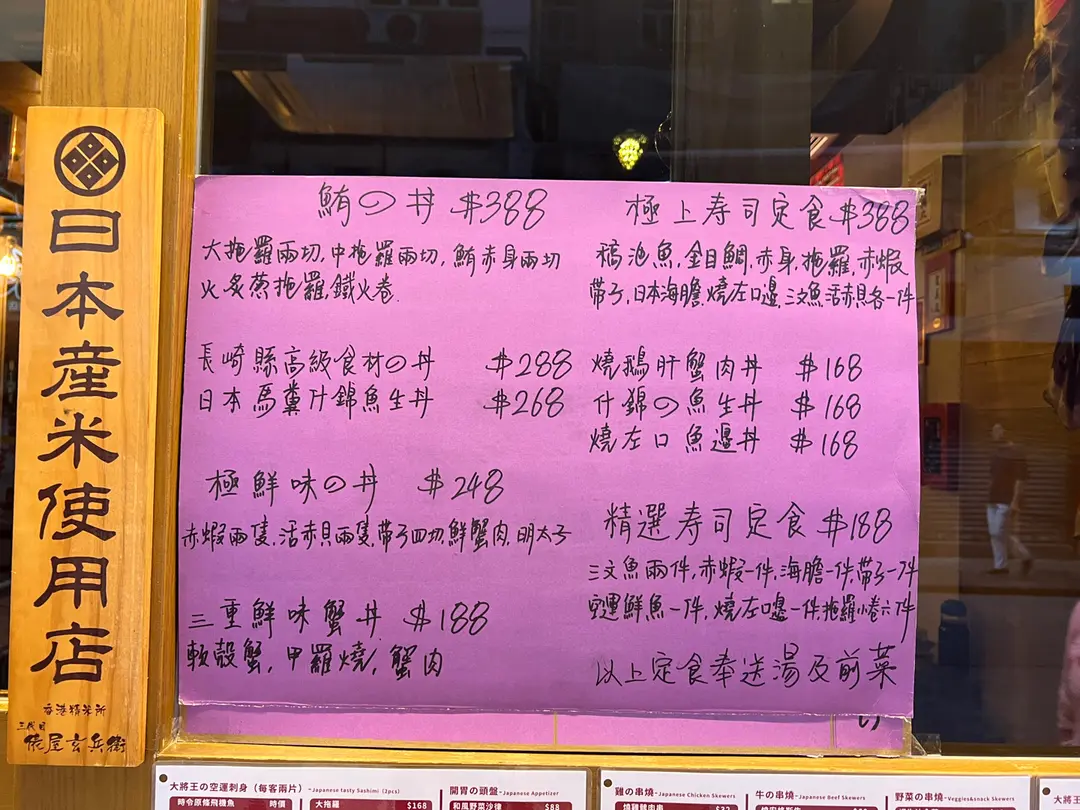 日本産米使用店
香港精米所
三代目
俵屋玄兵衛
鮪の丼 $388
大拖羅兩切,中拖羅兩切,鮪赤身兩切
火炙葱拖羅,鐵火卷.
長崎縣高級食材の丼 $288
日本馬糞什錦魚生丼 $268
極鮮味の丼 $248
赤蝦兩隻,活赤貝兩隻,帶子四切,鮮蟹肉,明太子
三重鮮味蟹丼 $188
軟殼蟹,甲羅燒,蟹肉
極上寿司定食 $388
池魚,金目鯛,赤身,拖羅,赤蝦
帶子,日本海膽,燒左口邊,三文魚,活赤貝各一件
燒鵝肝蟹肉丼 $168
什錦の魚生丼 $168
燒左口魚邊丼 $168
精選寿司定食 $188
三文魚兩件,赤蝦一件,海膽一件,帶子一件
空運鮮魚一件,燒左口邊一件,拖羅小卷六件
以上定食奉送湯及前菜
大將王の空運刺身（每客兩片）-Japanese tasty Sashimi (2pcs)
時令原條飛機魚 時價
大拖羅 $168
開胃の頭盤-Japanese Appetizer
和風野菜沙律 $88
雞の串燒-Japanese Chicken Skewers
燒雞雜肉串 $32
牛の串燒-Japanese Beef Skewers
野菜の串燒-Veggies&snack Skewers
大將